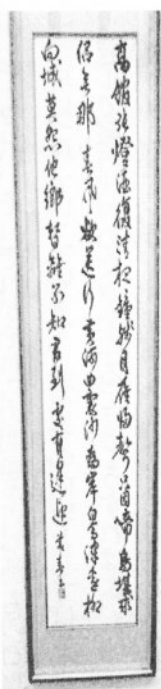 高館張燈酒復清夜鐘殘月雁歸聲只言啼鳥堪求
侶無那春風欲送行黃河曲裏沙為岸白馬津邊柳
向城莫怨他鄉暫離別知君到處有逢迎